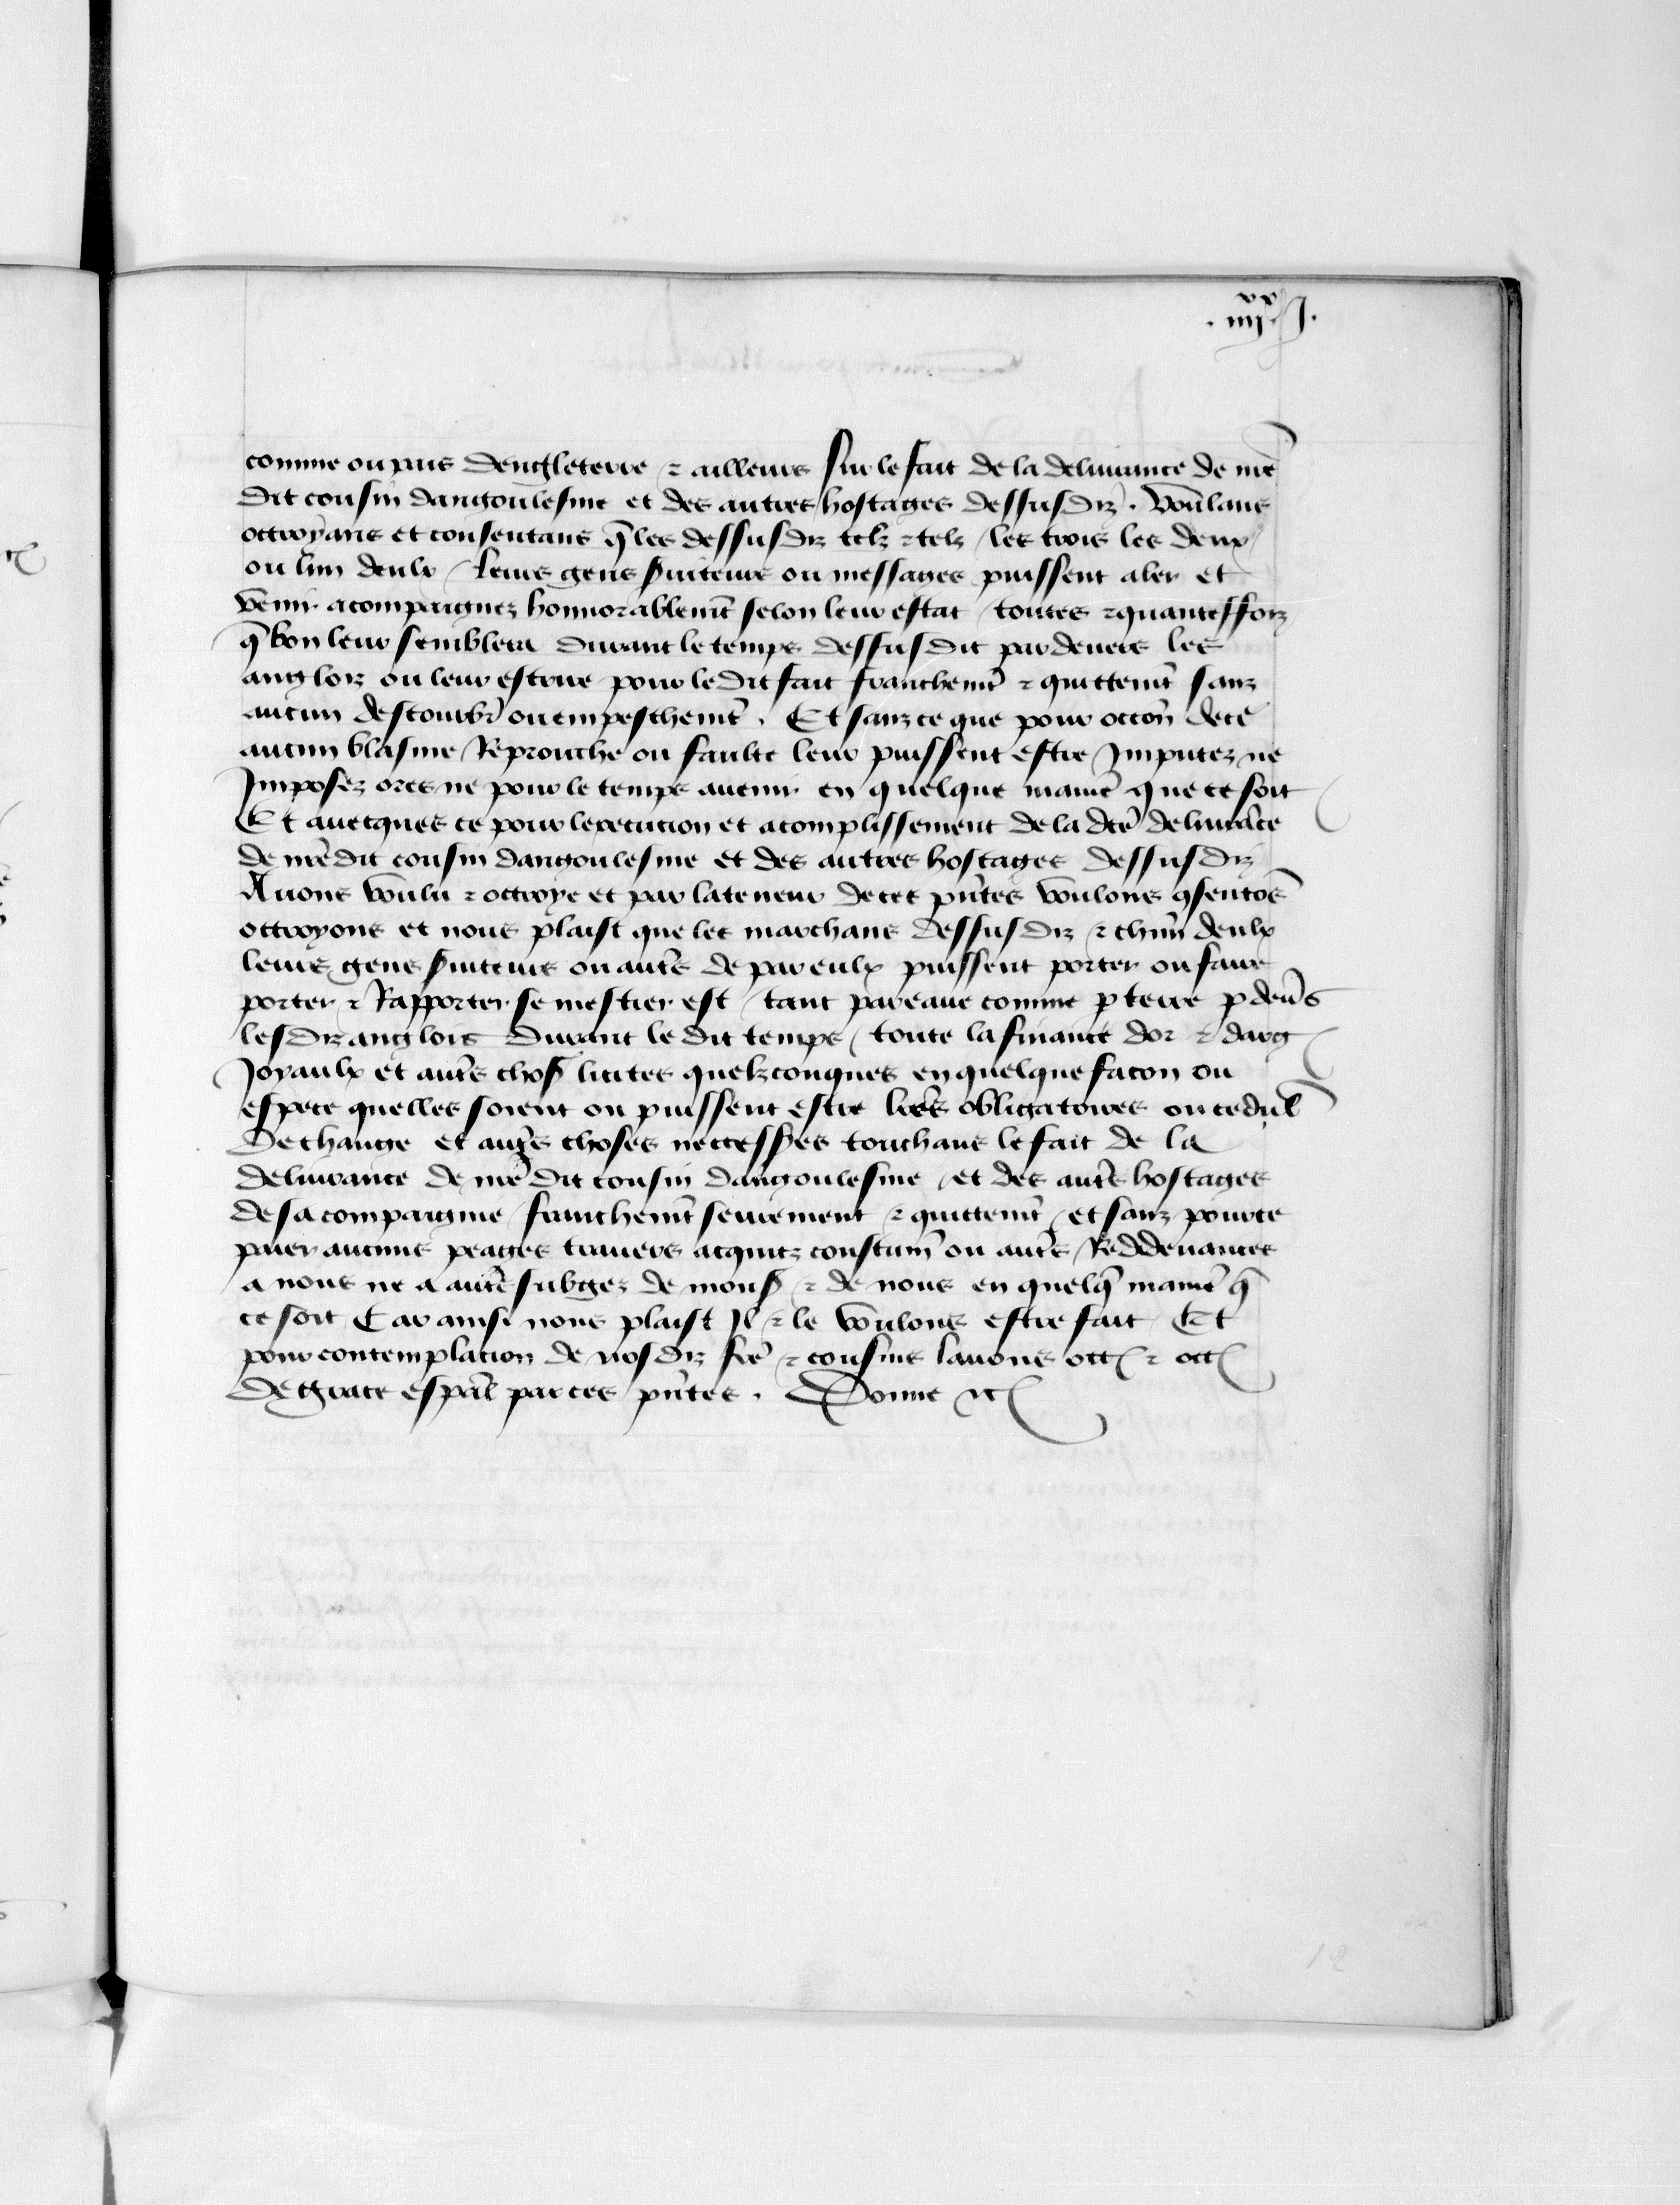 .iiijxx.j.
comme ou païs dengleterre ⁊ ailleurs sur le fait de la deliurance de nr̄e
dit cousin dangoulesme et des autres hostages dessusdiz . Voulans
ottroyans et consentans q̄ les dessusdiz telz ⁊ telz / les trois les deux
ou lun deulx / leurs gens s̄uiteurs ou messages puissent aler et
venir acompaignez honnorablemēt selon leur estat / toutes ⁊ quanteffoiz
q̄ bon leur semblera durant le temps dessusdit par deuers les
anglois ou leur estroie pour le dit fait franchemēt ⁊ quittemēt sanz
aucun destourbr̄ ou empeschemēt . Et sanz ce que pour occōn de ce
aucun blasme / Reprouche ou faulte leur puissent estre Imputez ne
Imposez ores ne pour le temps auenir en quelque manier̄ que ce soit
Et auecques ce pour lexecucion et acomplissement de la dc̄e deliurāce
de nr̄e dit cousin dangoulesme et des autres hostages dessusdiz
Auons voulu ⁊ ottroye et par la teneur de ces pn̄tes voulons ꝯsentōs
ottroyons et nous plaist que les marchans dessusdiz ⁊ chūn deulx
leurs gens s̄uiteurs ou autr̄s de par eulx puissent porter ou faire
porter ⁊ Rapporter se mestier est / tant par eaue comme ꝑ terre ꝑ deūs
lesdiz anglois durant le dit temps / toute la finance dor ⁊ darḡ
Joyaulx et autr̄s chos̄ licites quelzconques en quelque facon ou
espece quelles soient ou puissent estre lr̄es obligatoires ou cedul̄
de change et autr̄s choses neccess̄es touchans le fait de la
deliurance de nr̄e dit cousin dangoulesme / et des autr̄s hostages
de sa compaignie / franchemēt seurement ⁊ quittemēt / et sanz pour ce
paier aucuns peages trauers acquiz coustum̄ ou autr̄s / Reddeuances
a nous ne a autr̄s subgez de mons̄ ⁊ de nous en quelq̄ manier̄ q̄
ce soit Car ainsi nous plaist Il ⁊ le voulons estre fait / Et
pour contemplacion de nosdiz fr̄e ⁊ cousins lauons ott̄ ⁊ ott̄
de grace esp̄al par ces pn̄tes . Donne ⁊c̄
12